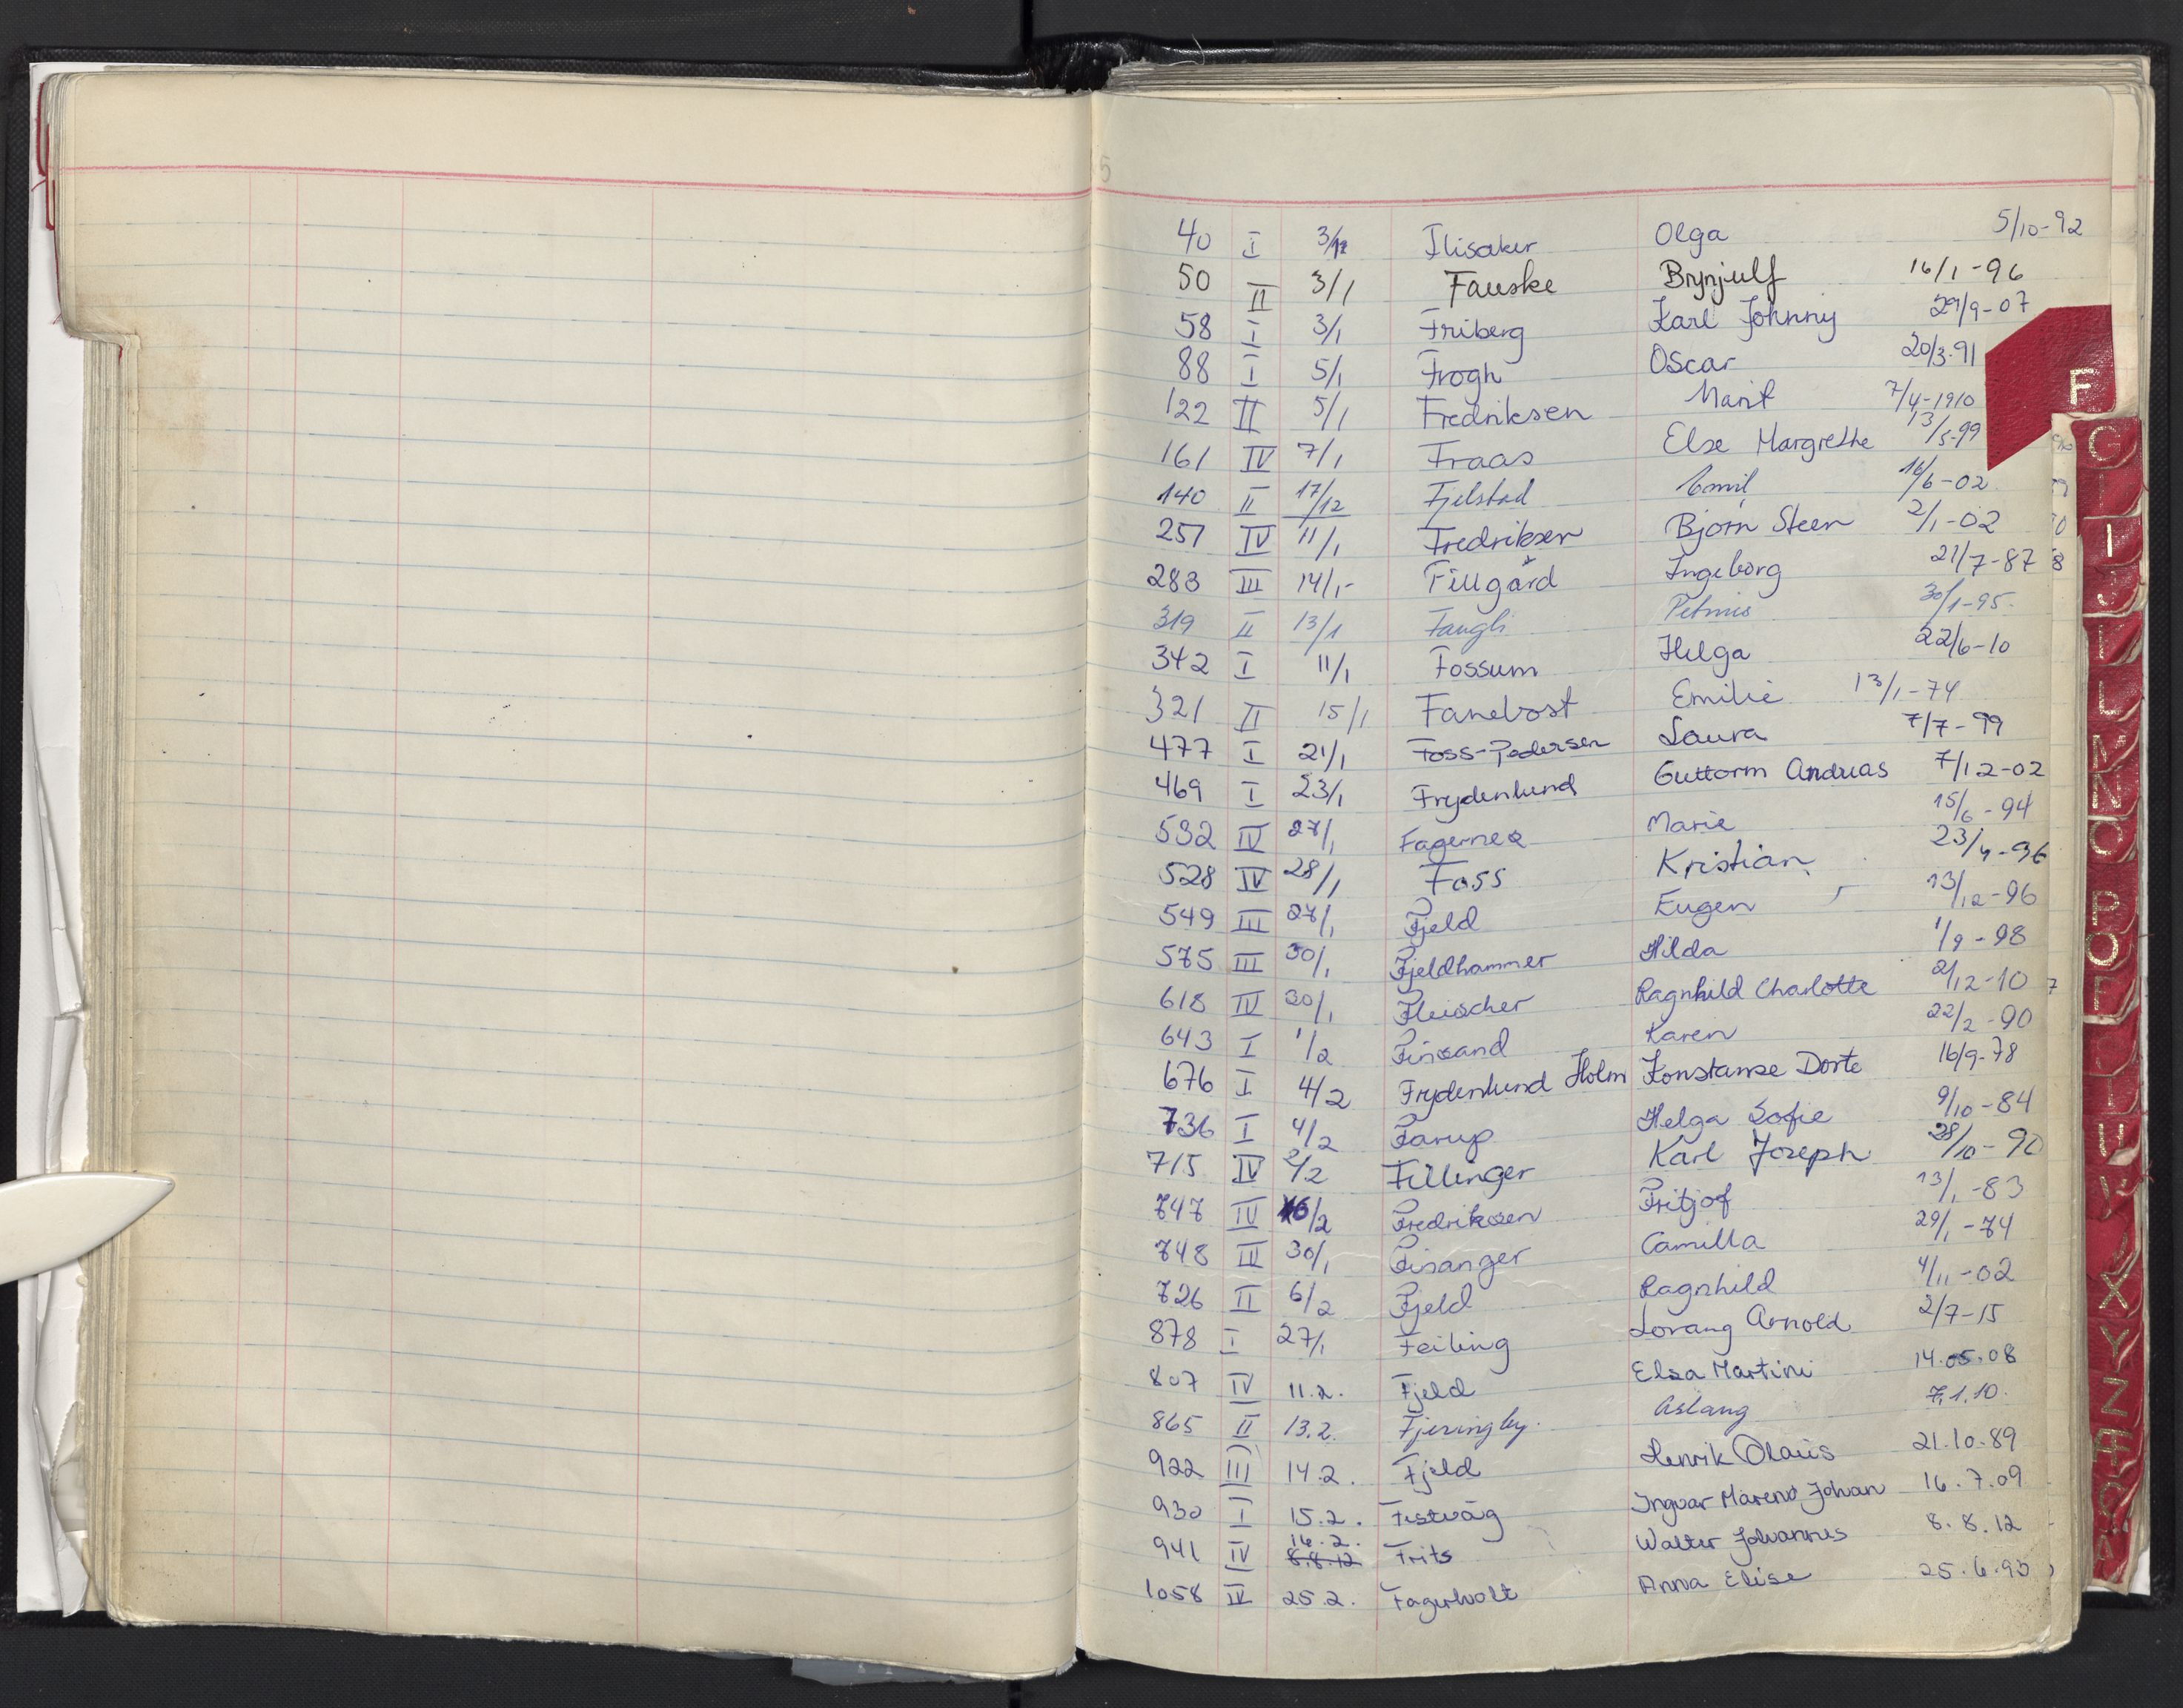 40 I 3/12 Flisaker Olga 5/10-92
50 II 3/1 Fauske Brynjulf 16/1-96
58 I 3/1 Friberg Karl Johnny 29/9-07
88 I 5/1 Frogh Oscar 20/3-91
122 II 5/1 Fredriksen Marit 7/4-1910
161 IV 7/1 Fraas Else Margrethe 13/5-99
140 II 17/12 Fjelstad Emil 16/6-02
257 IV 11/1 Fredriksen Bjørn Steen 2/1-02
283 III 14/1- Fillgård Ingeborg 21/7-87
319 II 13/1 Fangli 30/1-95
342 I 11/1 Fossum Helga 22/6-10
321 II 15/1 Fanebost Emilie 13/1-74
477 I 21/1 Foss-Pedersen Laura 7/7-99
469 I 23/1 Frydenlund Guttorm Andreas 7/12-02
532 IV 27/1 Fagernes Marie 15/6-94
528 IV 28/1 Foss Kristian 23/4-96
549 III 27/1 Fjeld Eugen 13/12-96
575 III 30/1 Fjeldhammer Hilda 1/9-98
618 IV 30/1 Fleischer Ragnhild Charlotte 2/12-10
643 I 1/2 Finsand Karen 22/2-90
676 I 4/2 Frydenlund Holm Konstanse Dorte 16/9-78
736 I 4/2 Farup Helga Sofie 9/10-84
715 IV 2/2 Fillinger Karl Joseph 28/10-90
747 IV 16/2 Fredriksen Fritjof 13/1-83
748 III 30/1 Fisanger Camilla 29/1-74
726 II 6/2 Fjeld Ragnhild 4/11-02
878 I 27/1 Feiling Lorang Arnold 2/7-15
807 IV 11.2. Fjeld Elsa Martine 14.05.08
865 II 13.2. Fjeringby. Aslaug 7.1.10.
922 III 14.2. Fjeld Henrik Olaus 21.10.89
930 I 15.2. Festvåg Ingvar Mareno Johan 16.7.09
941 IV 16.2. 8.8.12 Frits Walter Johannes 8.8.12
1058 IV 25.2. Fagerholt Anna Elise 25.6.93
F
G
I
J
L
M
N
O
P
Q
X
Y
Z
Æ